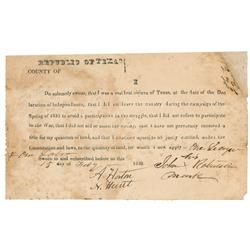 REPUBLIC OF TEXAS
COUNTY OF
I
Do solemnly swear, that I was a resident citizen of Texas, at the date of the Dec
laration of Independence, that I did not leave the country during the campaign of the
Spring of 1836 to avoid a participation in the struggle, that I did not refuse to participate
in the War, that I did not aid or assist the enemy, that I have not previously received a title
for my quantum of land, and that I conceive myself to be justly entitled, under the
Constitution and laws, to the quantity of land, for which I now apply
Sworn to and subscribed before me this
15 day of Feby 1838
his
John Robinson
mark
A Horton